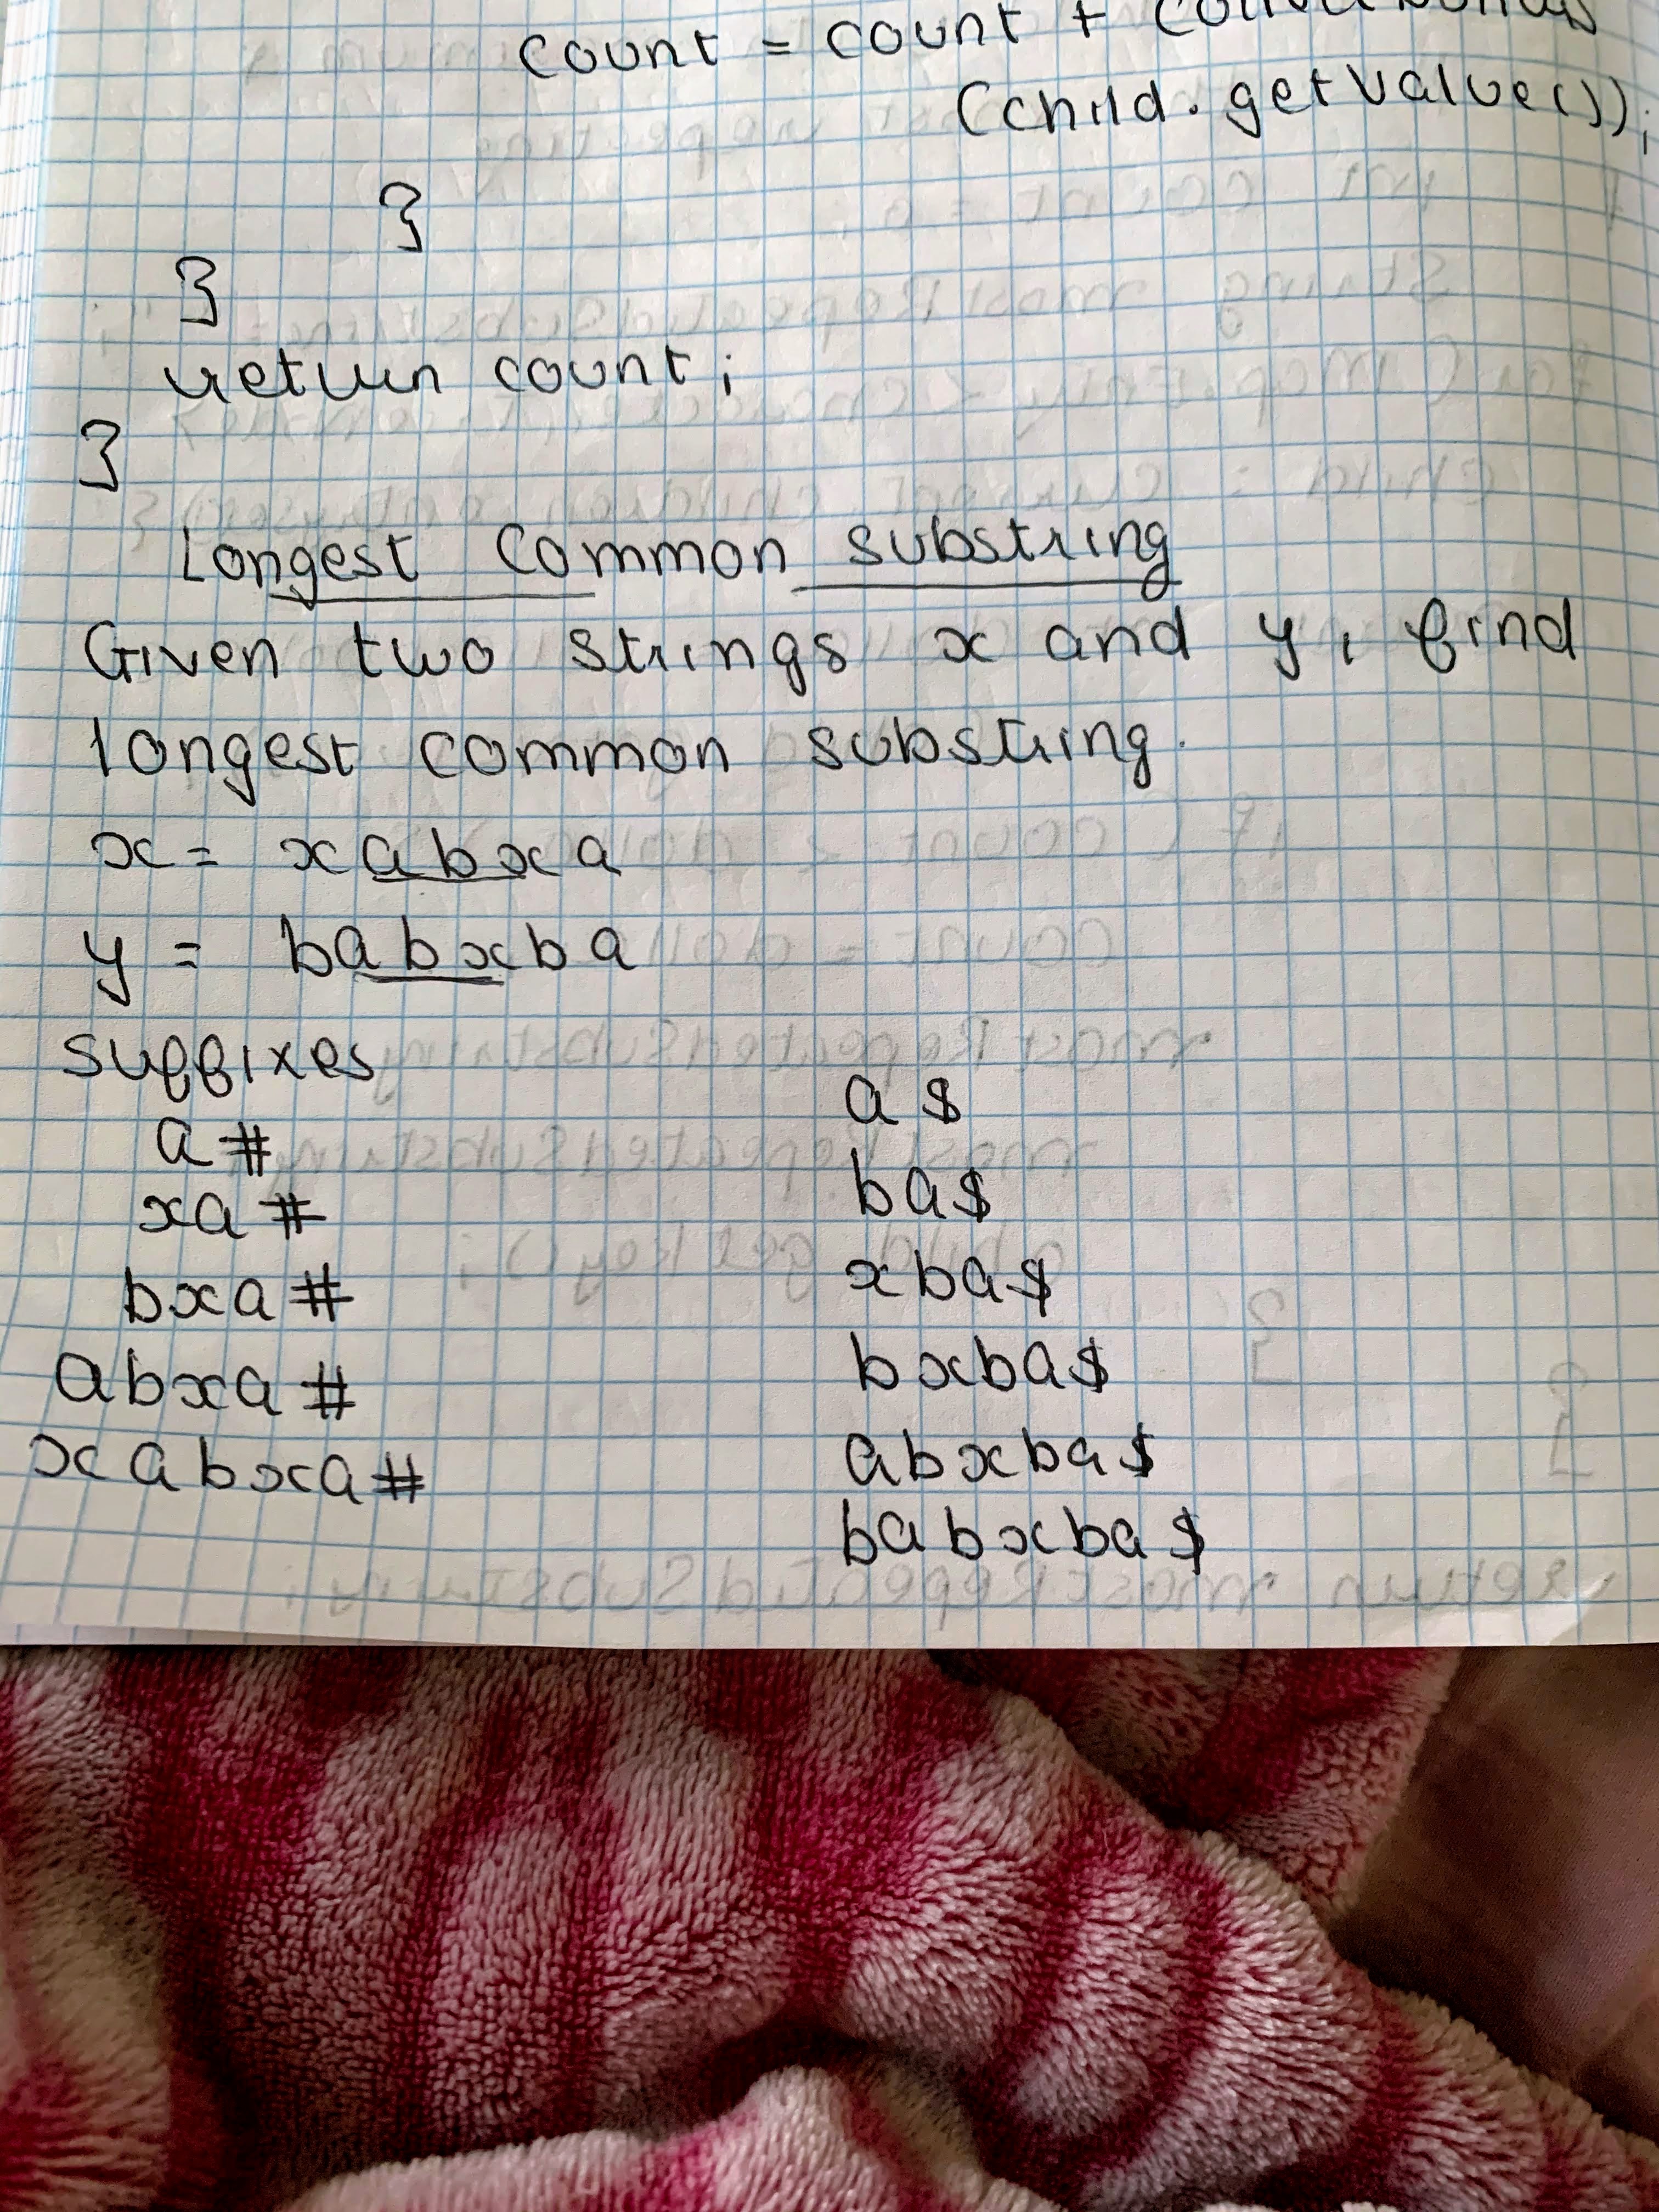 count = count +
(child.getValue());
}
}
return count;
}
Longest Common substring
Given two strings x and y, find
longest common substring.
x = xabxa
y = babxba
suffixes
a#
xa#
bxa#
abxa#
xabxa#
a$
ba$
xba$
bxba$
abxba$
babxba$